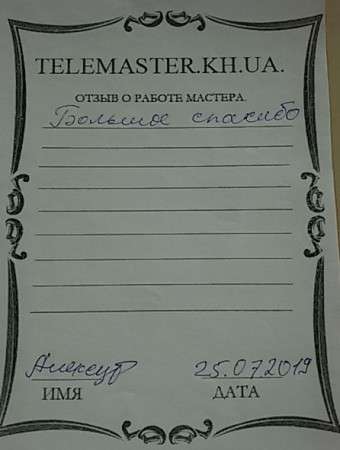 TELEMASTER.KH.UA.
ОТЗЫВ О РАБОТЕ МАСТЕРА.
Большое спасибо
25.07.2019
ИМЯ ДАТА